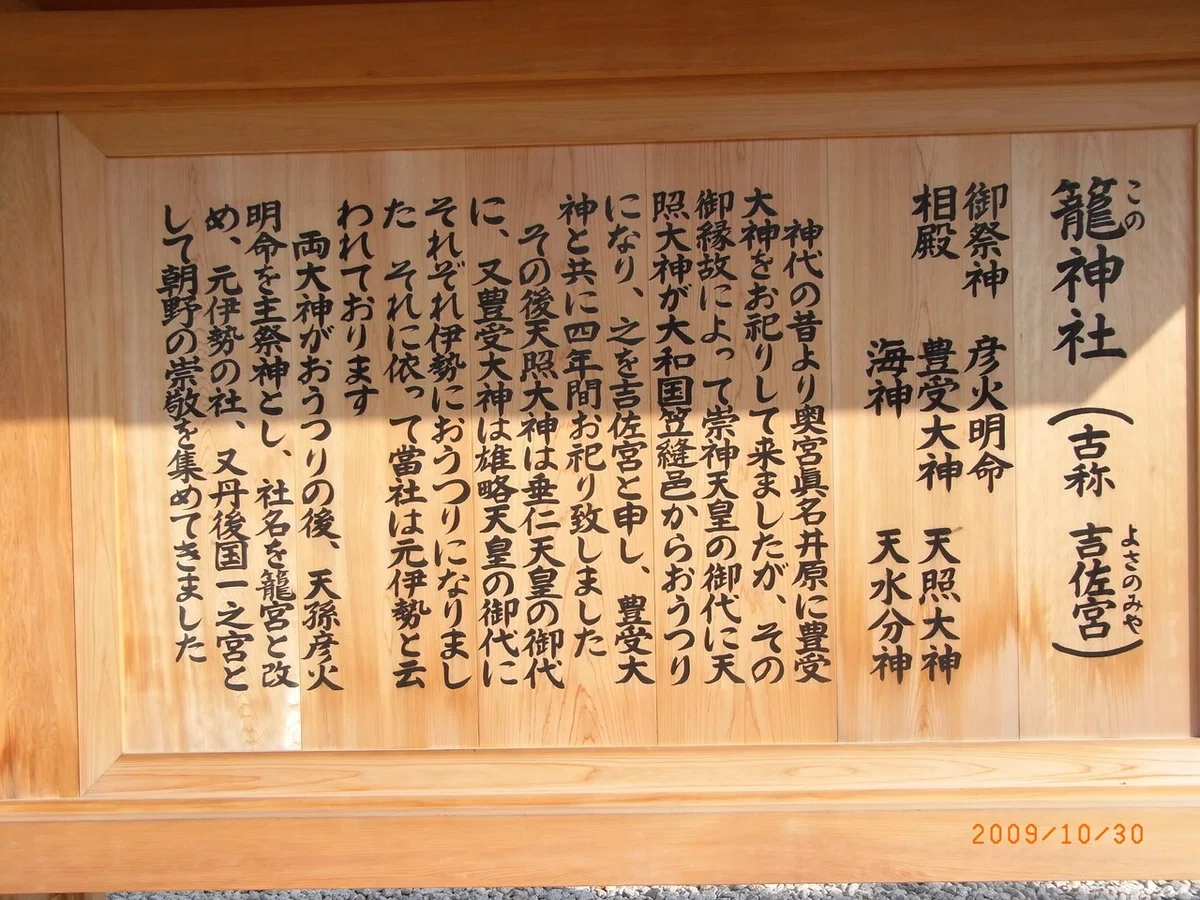 籠神社（古称 吉佐宮）
この
よさのみや
御祭神 彦火明命
相殿 豊受大神 天照大神
海神 天水分神
神代の昔より奥宮眞名井原に豊受
大神をお祀りして来ましたが、その
御縁故によって崇神天皇の御代に天
照大神が大和国笠縫邑からおうつり
になり、之を吉佐宮と申し、豊受大
神と共に四年間お祀り致しました
その後天照大神は垂仁天皇の御代
に、又豊受大神は雄略天皇の御代に
それぞれ伊勢におうつりになりまし
た それに依って當社は元伊勢と云
われております
両大神がおうつりの後、天孫彦火
明命を主祭神とし、社名を籠宮と改
め、元伊勢の社、又丹後国一之宮と
して朝野の崇敬を集めてきました
2009/10/30